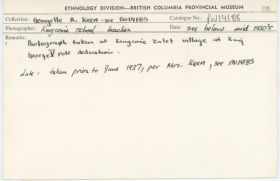 ETHNOLOGY DIVISION—BRITISH COLUMBIA PROVINCIAL MUSEUM
Collection: Georgette A. Keen - see PN14185 Catalogue No. PN14188
Photographer: Kingcome school teacher Date: see below mid 1930's
Remarks:
Photograph taken at Kingcome Inlet village at King
George V pole dedication.
date: taken prior to June 1937, per Mrs. Keen, see PN14185